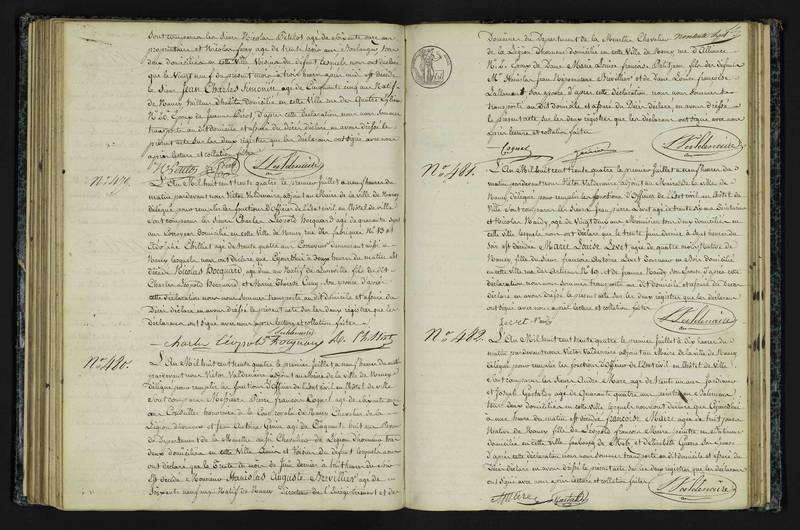 Sont comparus les Sieurs Nicolas Petitot agé de soixante
propriétaire et Nicolas agé de trente trois ans Boulanger tous
deux domiciliés en cette Ville Voisins du défunt lesquels nous ont déclaré
que le Vingt neuf du présent mois à trois heures après midi est décédé
le Sieur Jean Charles Simonin agé de Cinquante cinq ans Natif
de Nancy tailleur d'habits domicilié en cette Ville rue des Quatre Eglises
d'après cette déclaration nous nous sommes
transporté au dit domicile et assuré du Décès déclaré en avons dressé le
présent acte Sur les deux registres que les déclarants ont signé avec nous
après lecture et collation faite
No. 479.
L'An Mil huit cent trente quatre le premier Juillet à neuf heures du
matin pardevant nous Victor Valdenaire adjoint au Maire de la Ville de Nancy
délégué pour remplir les fonctions d'Officier de l'Etat civil au Hôtel de ville
sont comparus les Sieurs Charles Léopold Hocquard agé de quarante
ans Corroyeur domicilié en cette Ville de Nancy rue des fabriques No. 13 et
Adolphe Chilliot agé de trente quatre ans Corroyeur demeurant aussi à
Nancy lesquels nous ont déclaré que aujourd'hui à deux heures du matin est
décédé Nicolas Hocquard agé d'un an Natif de Lunéville fils du dit
Charles Léopold Hocquard et Marie Thérèse son épouse d'après
cette déclaration nous nous sommes transporté au dit domicile et assuré du
Décès déclaré en avons dressé le présent acte Sur les deux registres que les
déclarants ont signé avec nous après lecture et collation faite
Charles Léopold Hocquard
No. 480.
L'An Mil huit cent trente quatre le premier Juillet à neuf heures du matin
pardevant nous Victor Valdenaire adjoint au Maire de la Ville de Nancy
délégué pour remplir les fonctions d'Officier de l'Etat civil au Hôtel de ville
sont comparus Messieurs Pierre François Cognel agé de soixante
ans Conseiller honoraire à la Cour royale de Nancy Chevalier de la
Légion d'honneur et Jean Antoine agé de Cinquante huit ans
du département de la Meurthe aussi Chevalier de la Légion d'honneur tous
deux domiciliés en cette Ville Amis et Voisins du défunt lesquels nous
ont déclaré que le trente du mois de Juin dernier à huit heures du soir
est décédé Monsieur Stanislas Auguste Brevillier agé de
Soixante neuf ans Natif de Nancy Directeur de l'Enregistrement et des
Domaines du Département de la Meurthe Chevalier
de la Légion d'honneur domicilié en cette Ville de Nancy rue d'Alliance
No. 2. Epoux de Dame Marie Louise françoise Petitjean fils des défunts
Mr. Nicolas Jean Népomucène Brevillier et de Dame Louise françoise
Lallement son épouse d'après cette déclaration nous nous sommes
transporté au dit domicile et assuré du Décès déclaré en avons dressé
le présent acte sur les deux registres que les déclarants ont signé avec nous
après lecture et collation faite
Cognel
No. 481.
L'An Mil huit cent trente quatre le premier Juillet à neuf heures du
matin pardevant nous Victor Valdenaire adjoint au Maire de la ville de
Nancy délégué pour remplir les fonctions d'Officier de l'Etat civil au Hôtel de
Ville sont comparus les Sieurs Jean pierre Lovet agé de trente
et Nicolas Naudy agé de Vingt deux ans Menuisier tous deux domiciliés en
cette ville lesquels nous ont déclaré que le trente Juin dernier à sept heures du
soir est décédée Marie Louise Lovet agée de quatre mois Native de
Nancy fille du Sieur françois Antoine Lovet domicilié
en cette ville rue des Artisans No. 19. et de Jeanne Naudy son épouse d'après cette
déclaration nous nous sommes transporté au dit domicile et assuré du décès
déclaré en avons dressé le présent acte sur les deux registres que les déclarants
ont signé avec nous après lecture et collation faite
Lovet
No. 482.
L'An Mil huit cent trente quatre le premier Juillet à dix heures du
matin pardevant nous Victor Valdenaire adjoint au Maire de la ville de Nancy
délégué pour remplir les fonctions d'Officier de l'Etat civil au Hôtel de Ville
sont comparus les Sieurs André Maire agé de trente un ans Jardinier
et Joseph agé de Quarante quatre ans
tous deux domiciliés en cette ville lesquels nous ont déclaré que aujourd'hui
à une heure du matin est décédée françoise Maire agée de huit jours
Native de Nancy fille de Léopold françois Maire
domicilié en cette ville faubourg de Metz et d'Elisabeth son épouse
d'après cette déclaration nous nous sommes transporté au dit domicile et assuré du
Décès déclaré en avons dressé le présent acte sur les deux registres que les déclarants
ont signé avec nous après lecture et collation faite